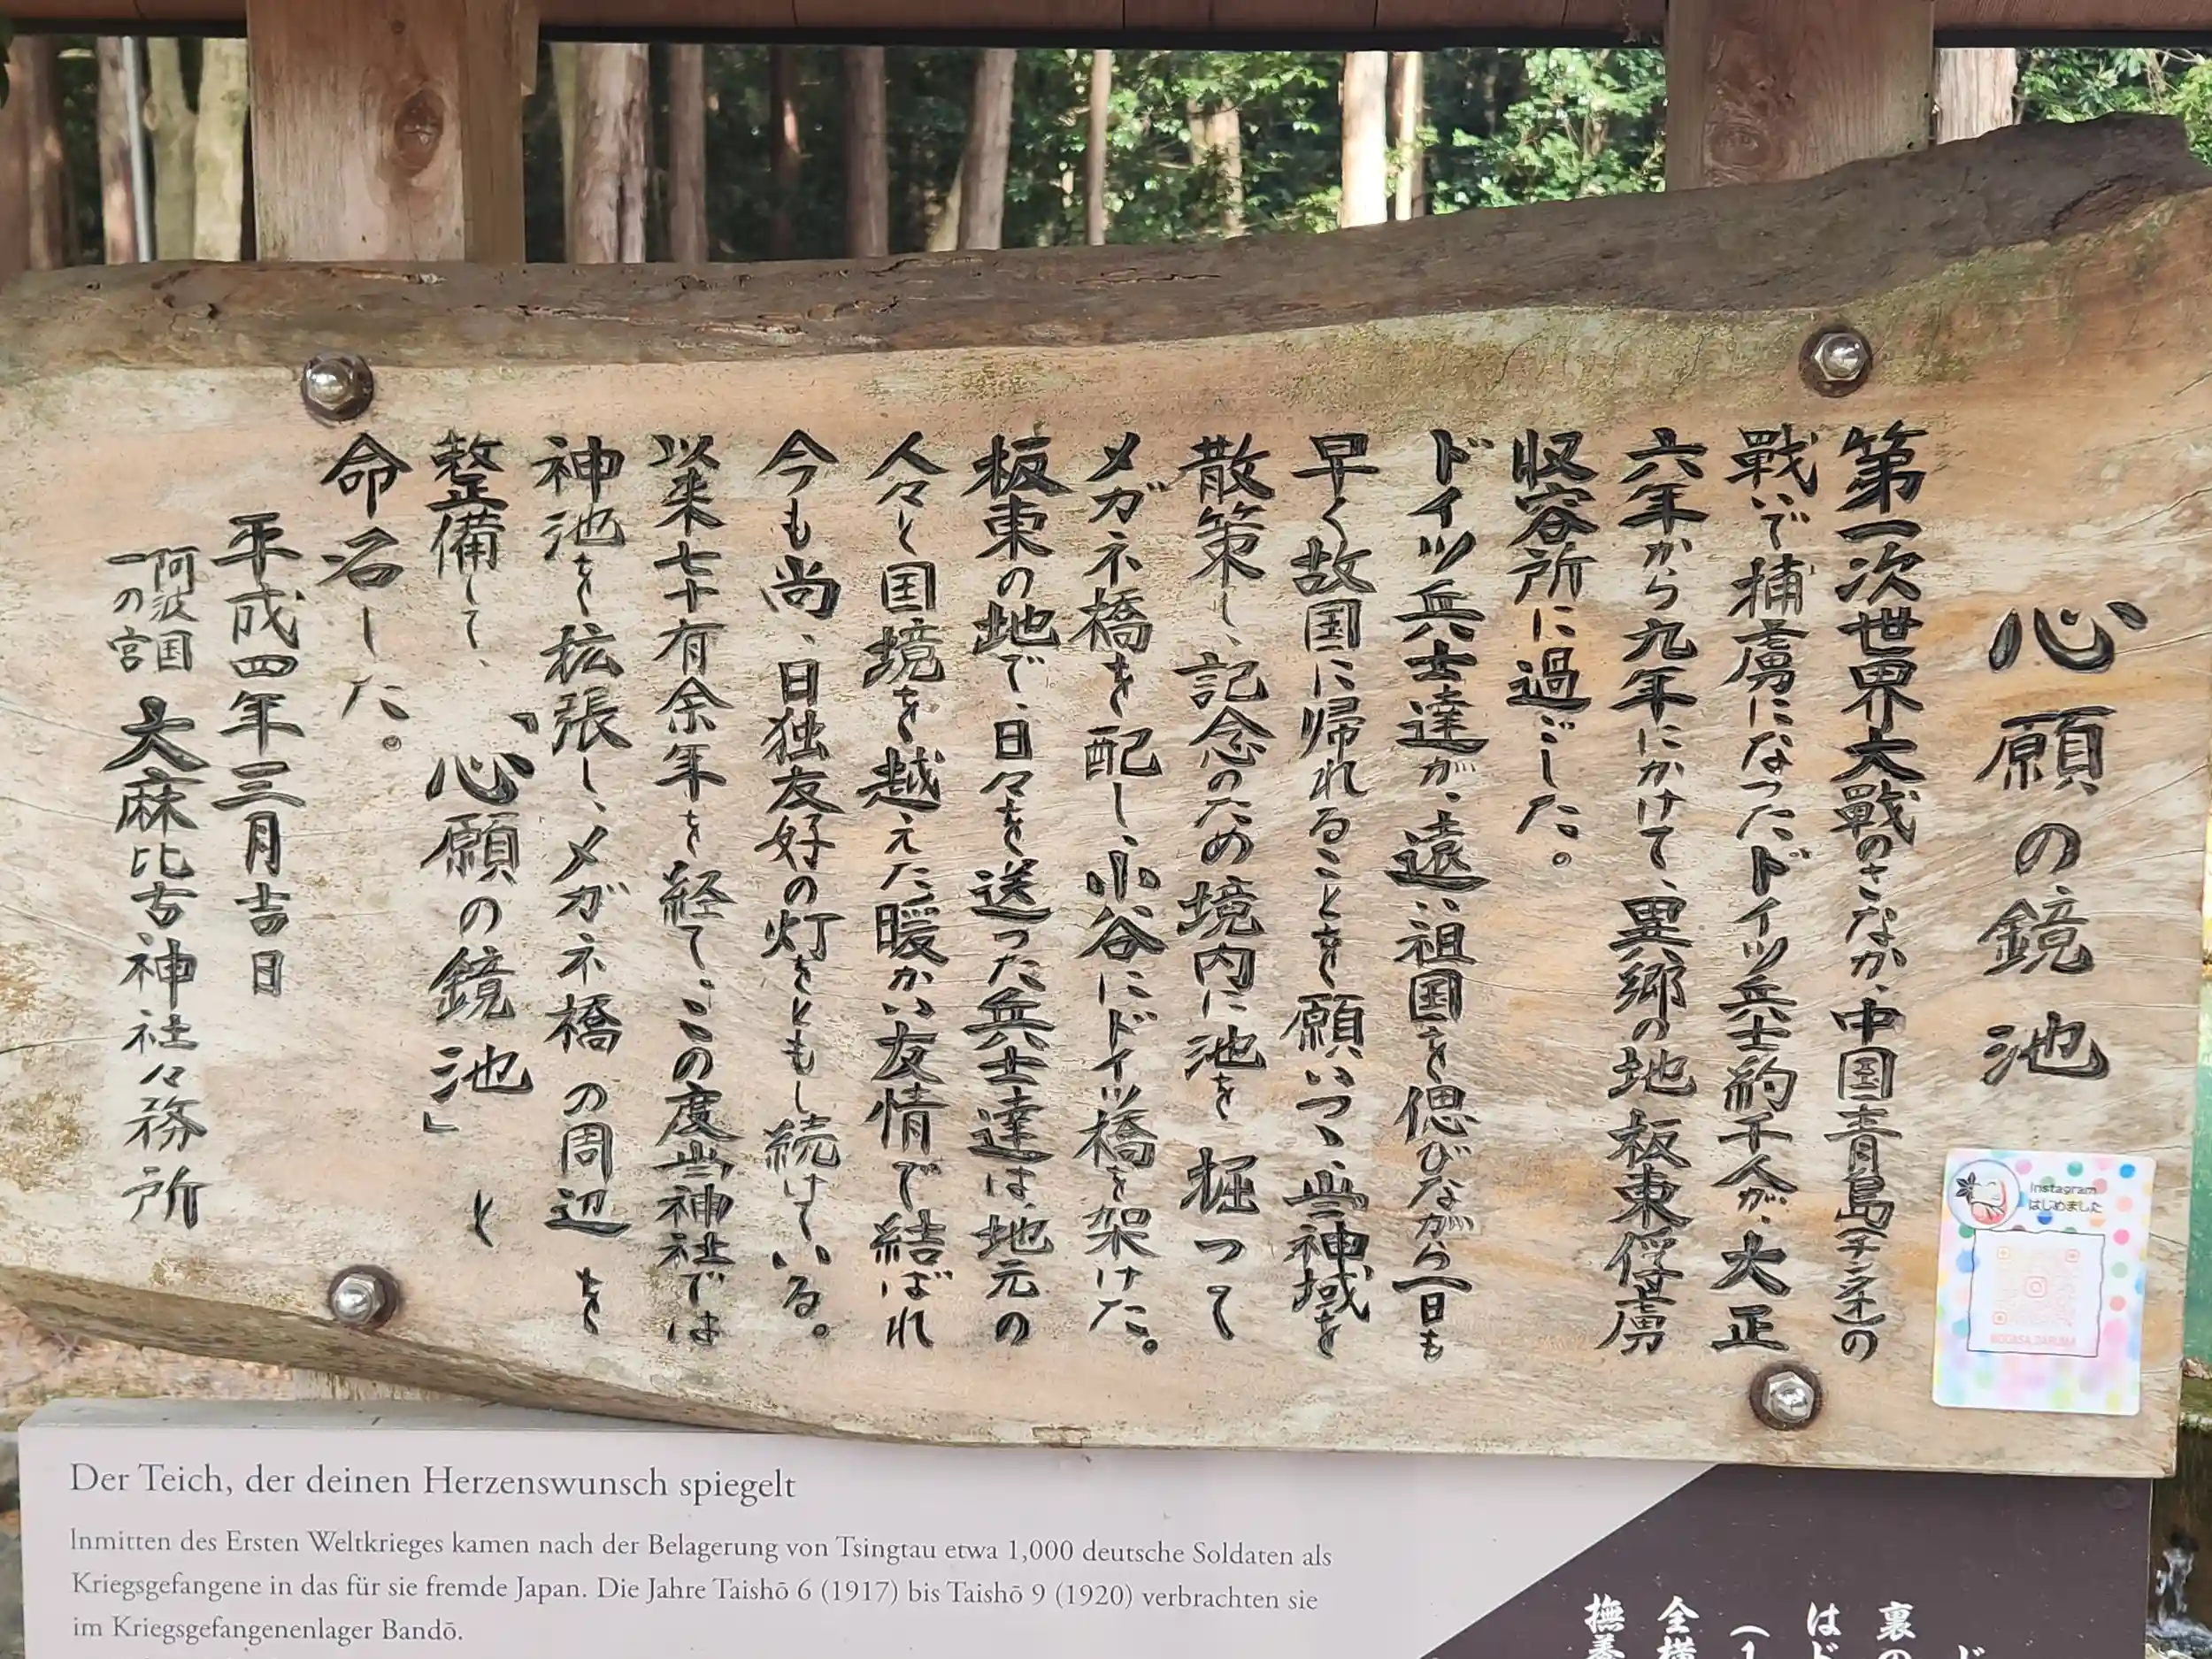 心願の鏡池
第一次世界大戦のさなか、中国青島(チンタオ)の
戦いで捕虜になったドイツ兵士約千人が、大正
六年から九年にかけて、異郷の地板東俘虜
収容所に過ごした。
ドイツ兵士達が、遠い祖国を偲びながら一日も
早く故国に帰れることを願いつつ、当神域を
散策し、記念のため境内に池を掘って
メガネ橋を配し、小谷にドイツ橋を架けた。
板東の地で、日々を送った兵士達は、地元の
人々と国境を越えた暖かい友情で結ばれ
今も尚、日独友好の灯をともし続けている。
以来七十有余年を経て、この度当神社では
神池を拡張し、メガネ橋の周辺を
整備して、「心願の鏡池」と
命名した。
平成四年三月吉日
阿波国
一の宮
大麻比古神社々務所
Instagram
はじめました
Der Teich, der deinen Herzenswunsch spiegelt
Inmitten des Ersten Weltkrieges kamen nach der Belagerung von Tsingtau etwa 1,000 deutsche Soldaten als
Kriegsgefangene in das für sie fremde Japan. Die Jahre Taishō 6 (1917) bis Taishō 9 (1920) verbrachten sie
im Kriegsgefangenenlager Bandō.
ド
裏の
はド
(1
全横
撫養